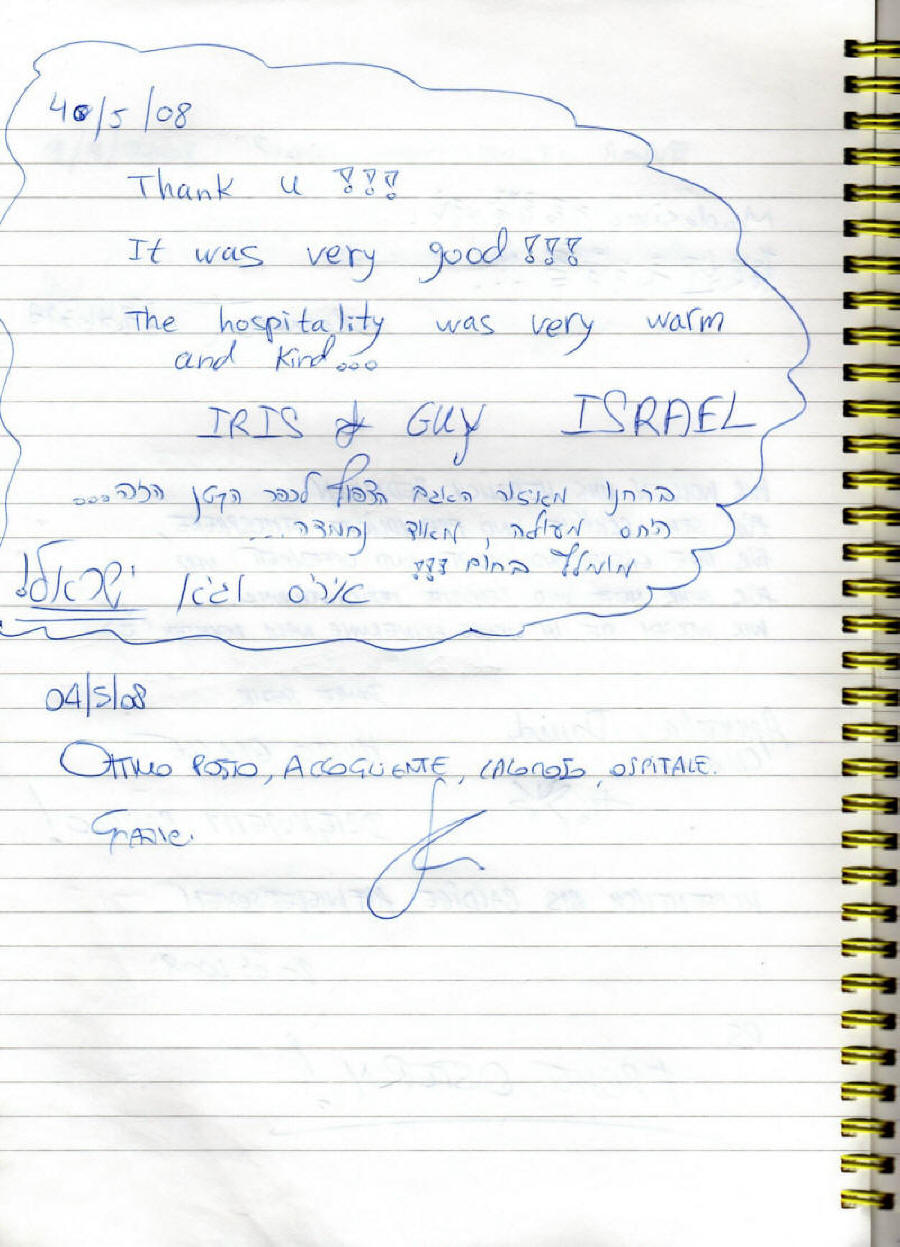 4/5/08
Thank u !!!
It was very good !!!
The hospitality was very warm
and kind...
IRIS & GUY ISRAEL
ברחנו מאיזור האגם הצפוף לכפר הקטן הזה....
היחס מעולה, מאוד נחמדה...
מומלץ בחום !!!
איריס וגיא ישראל!
04/5/08
OTTIMO POSTO, ACCOGLIENTE, CALOROSO, OSPITALE.
GRAZIE.